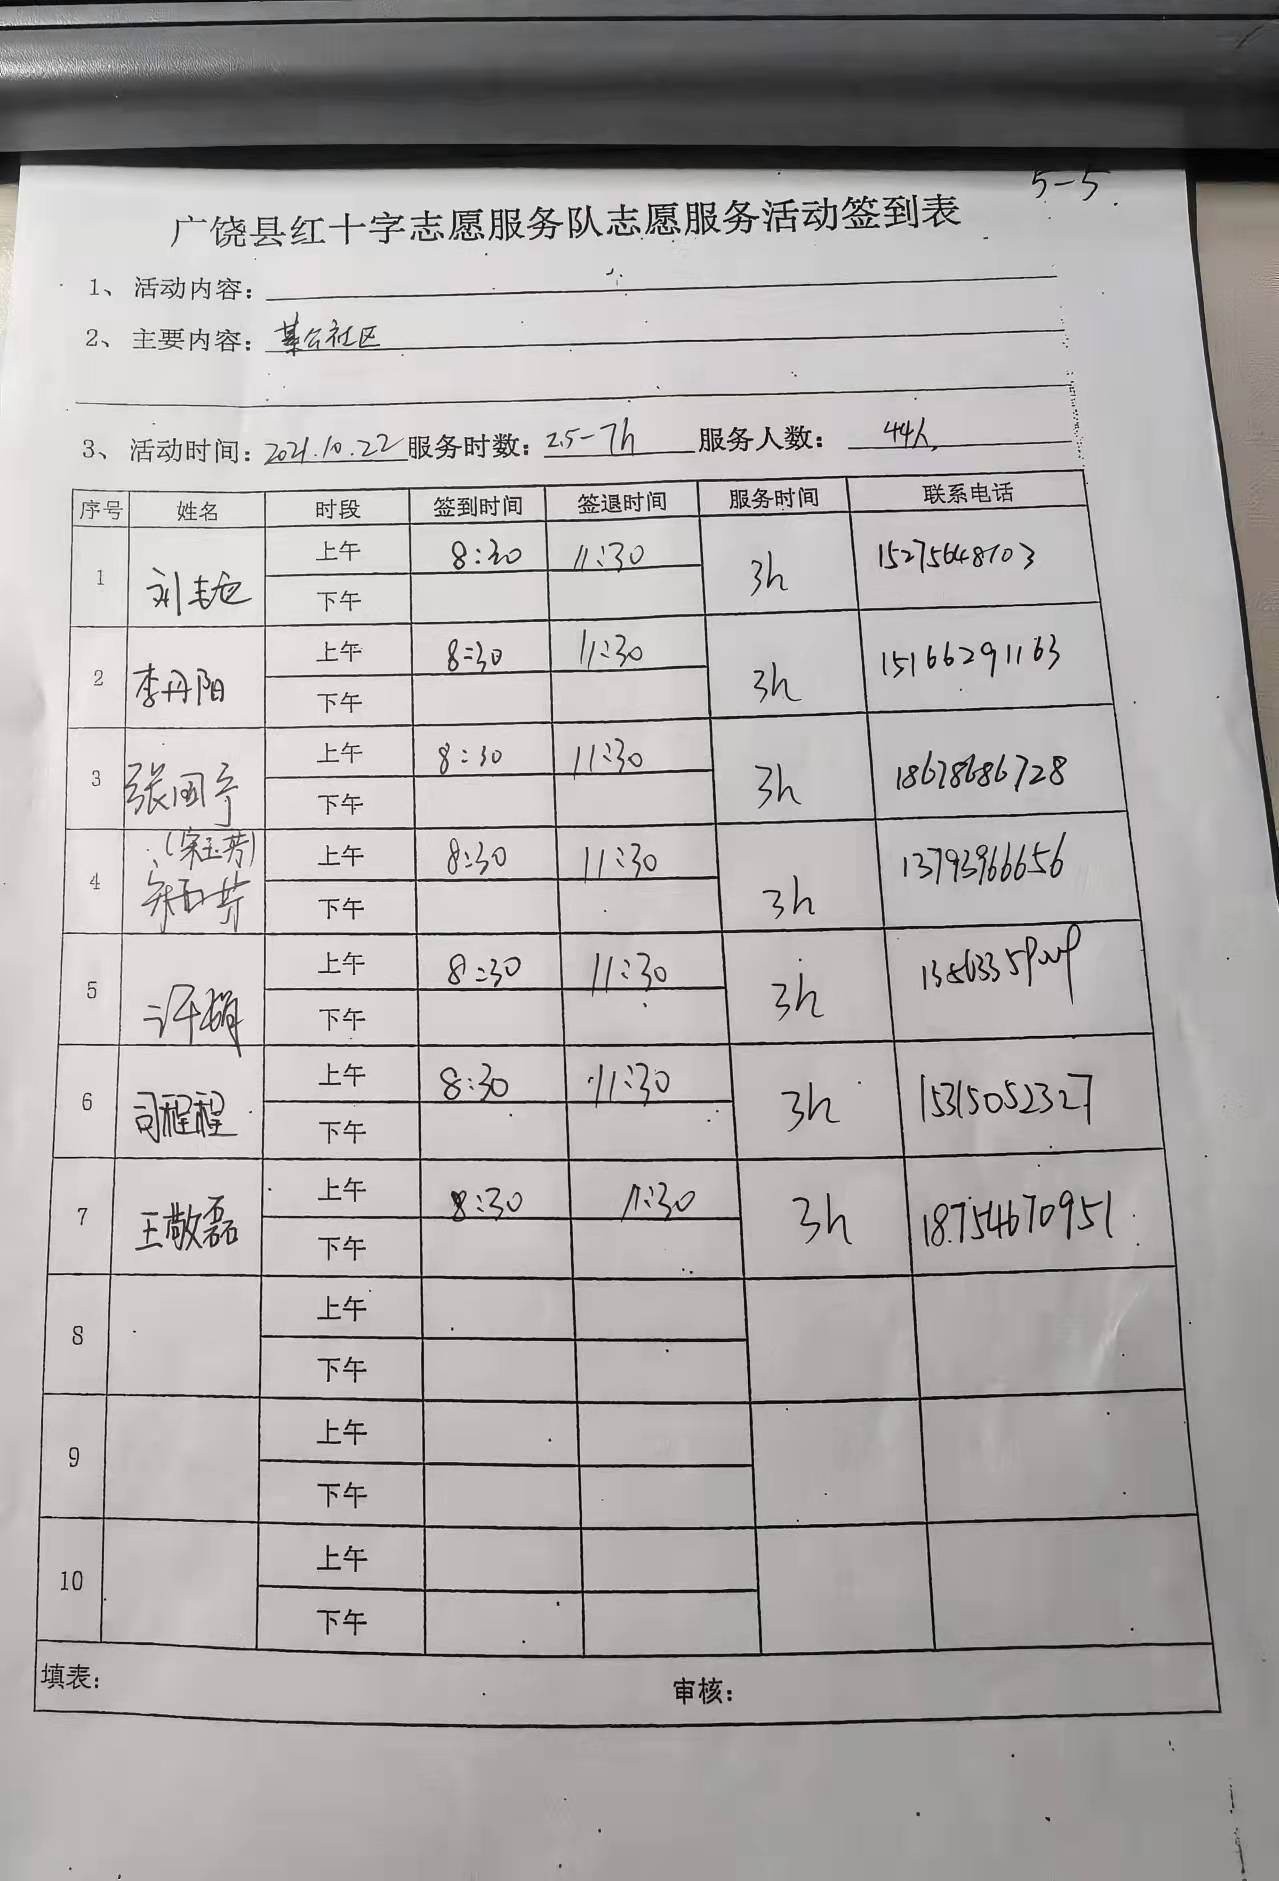 5-5
广饶县红十字志愿服务队志愿服务活动签到表
1、活动内容：
2、主要内容：社区
3、活动时间：2021.10.22 服务时数：2.5-7h 服务人数：44人
序号 姓名 时段 签到时间 签退时间 服务时间 联系电话
1 刘 上午 8:30 11:30 3h 15275648703
下午
2 李丹阳 上午 8:30 11:30 3h 15166291163
下午
3 张 上午 8:30 11:30 3h 18678686728
下午
(宋玉芳)
4 宋玉芳 上午 8:30 11:30 3h 13793966656
下午
5 许娟 上午 8:30 11:30 3h
下午
6 司程程 上午 8:30 11:30 3h 15315052327
下午
7 王敬磊 上午 8:30 11:30 3h 18754670951
下午
8 上午
下午
9 上午
下午
10 上午
下午
填表： 审核：